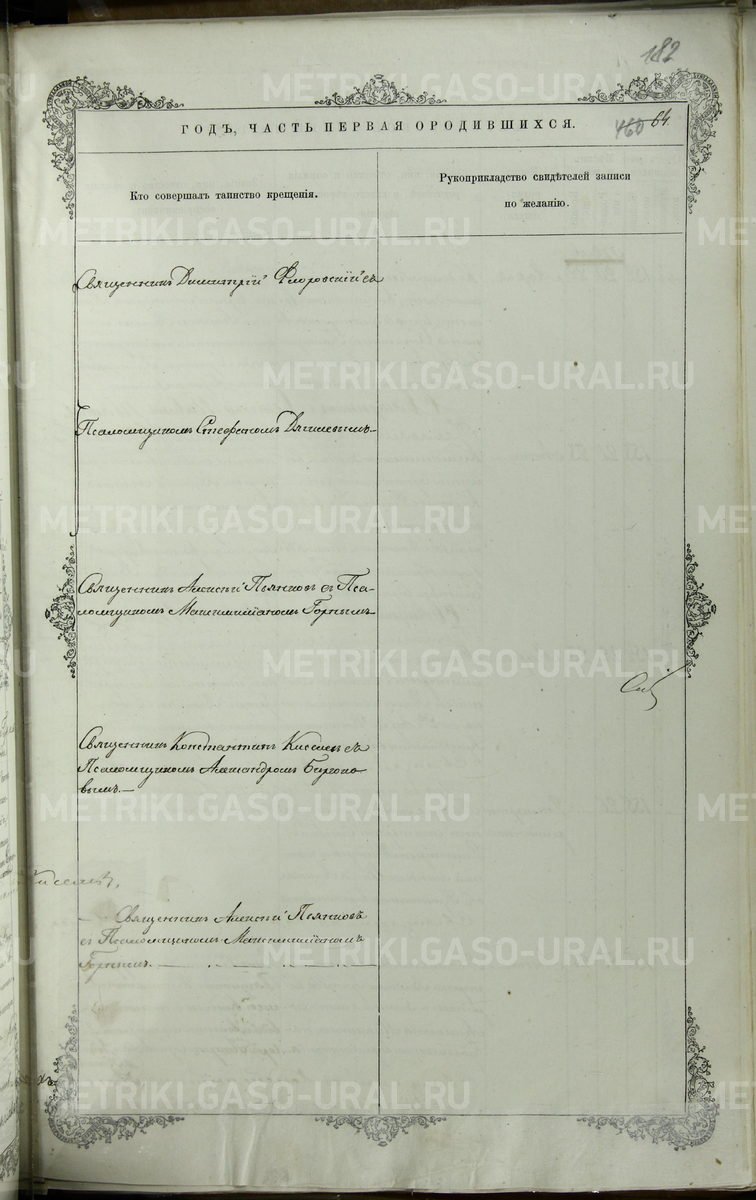 182
ГОДЪ, ЧАСТЬ ПЕРВАЯ О РОДИВШИХСЯ.
460 64.
Кто совершалъ таинство крещенія.
Рукоприкладство свидѣтелей записи
по желанію.
Священникъ Димитрій Флоровскій съ
Псаломщикомъ Стефаномъ
Священникъ Алексѣй Пьянковъ съ Пса-
ломщикомъ Максимиліаномъ Горнымъ
Священникъ Константинъ Киселевъ съ
Псаломщикомъ Александромъ
вымъ.—
— Священникъ Алексѣй Пьянковъ
съ Псаломщикомъ Максимиліаномъ
Горнымъ.
METRIKI.GASO-URAL.RU